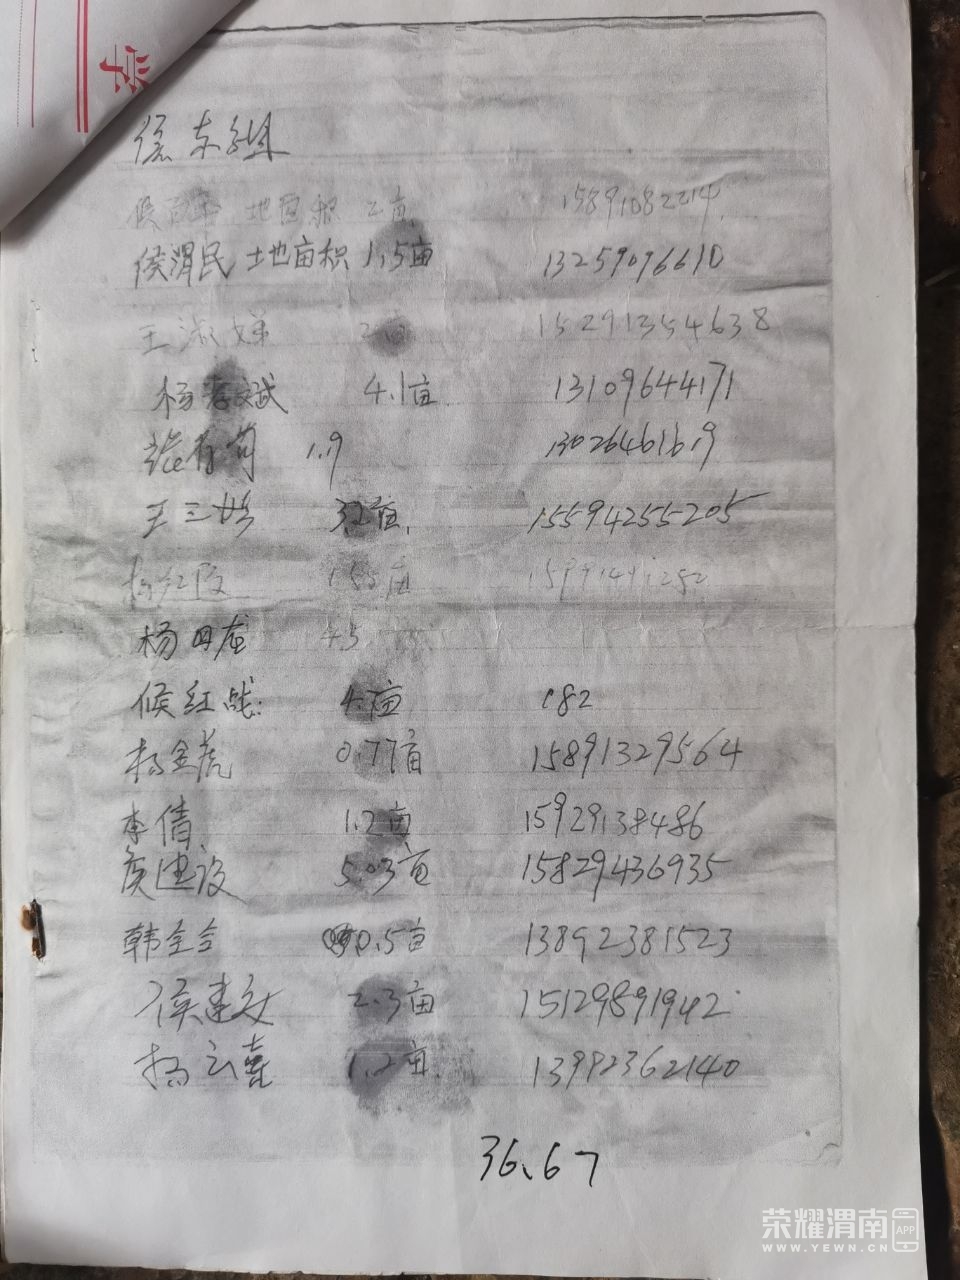 学
侯东组
侯 地亩积 2亩 15891082214
侯渭民 土地亩积 1.5亩 13259096610
王淑娣 2亩 15291354638
杨孝斌 4.1亩 13109644171
张存荷 1.9 13026461619
王三 32亩 15594255205
杨红 亩
杨 4.5
候红战 4.1亩 182
杨金虎 0.77亩 15891329564
李倩 1.2亩 15929138486
侯建设 5.03亩 15829436935
韩全会 0.5亩 13892381523
侯建文 2.3亩 15129891942
杨云喜 1.2亩 13992362140
36.67
荣耀渭南 APP
WWW.YEWN.CN